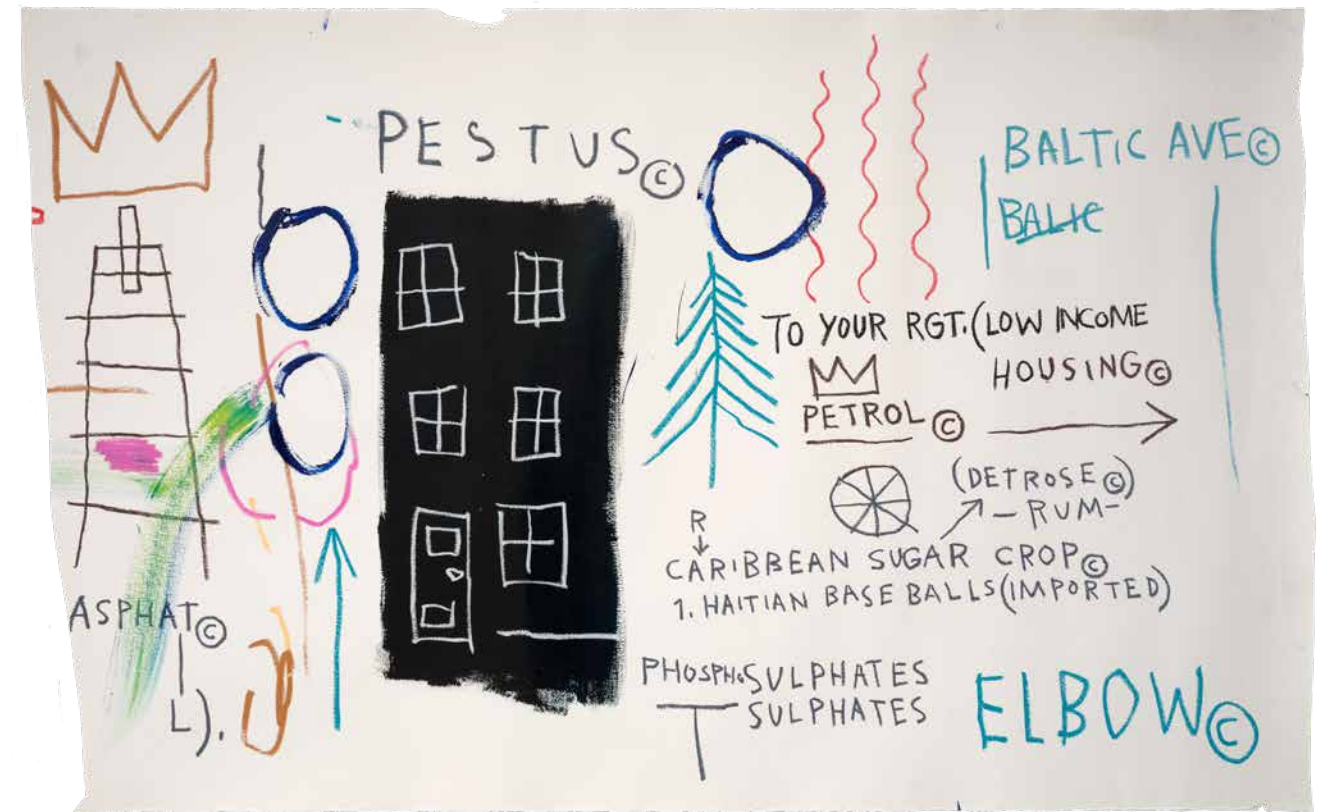 PESTUS©
BALTIC AVE©
BALIC
TO YOUR RGT. (LOW INCOME
HOUSING©
PETROL©
(DETROSE©)
- RUM -
R
CARIBBEAN SUGAR CROP©
1. HAITIAN BASE BALLS (IMPORTED)
ASPHAT©
L).
PHOSPHoSULPHATES
SULPHATES
ELBOW©